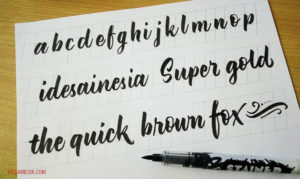 a b c d e f g h i j k l m n o p
idesainesia Super gold
the quick brown fox
STAINER